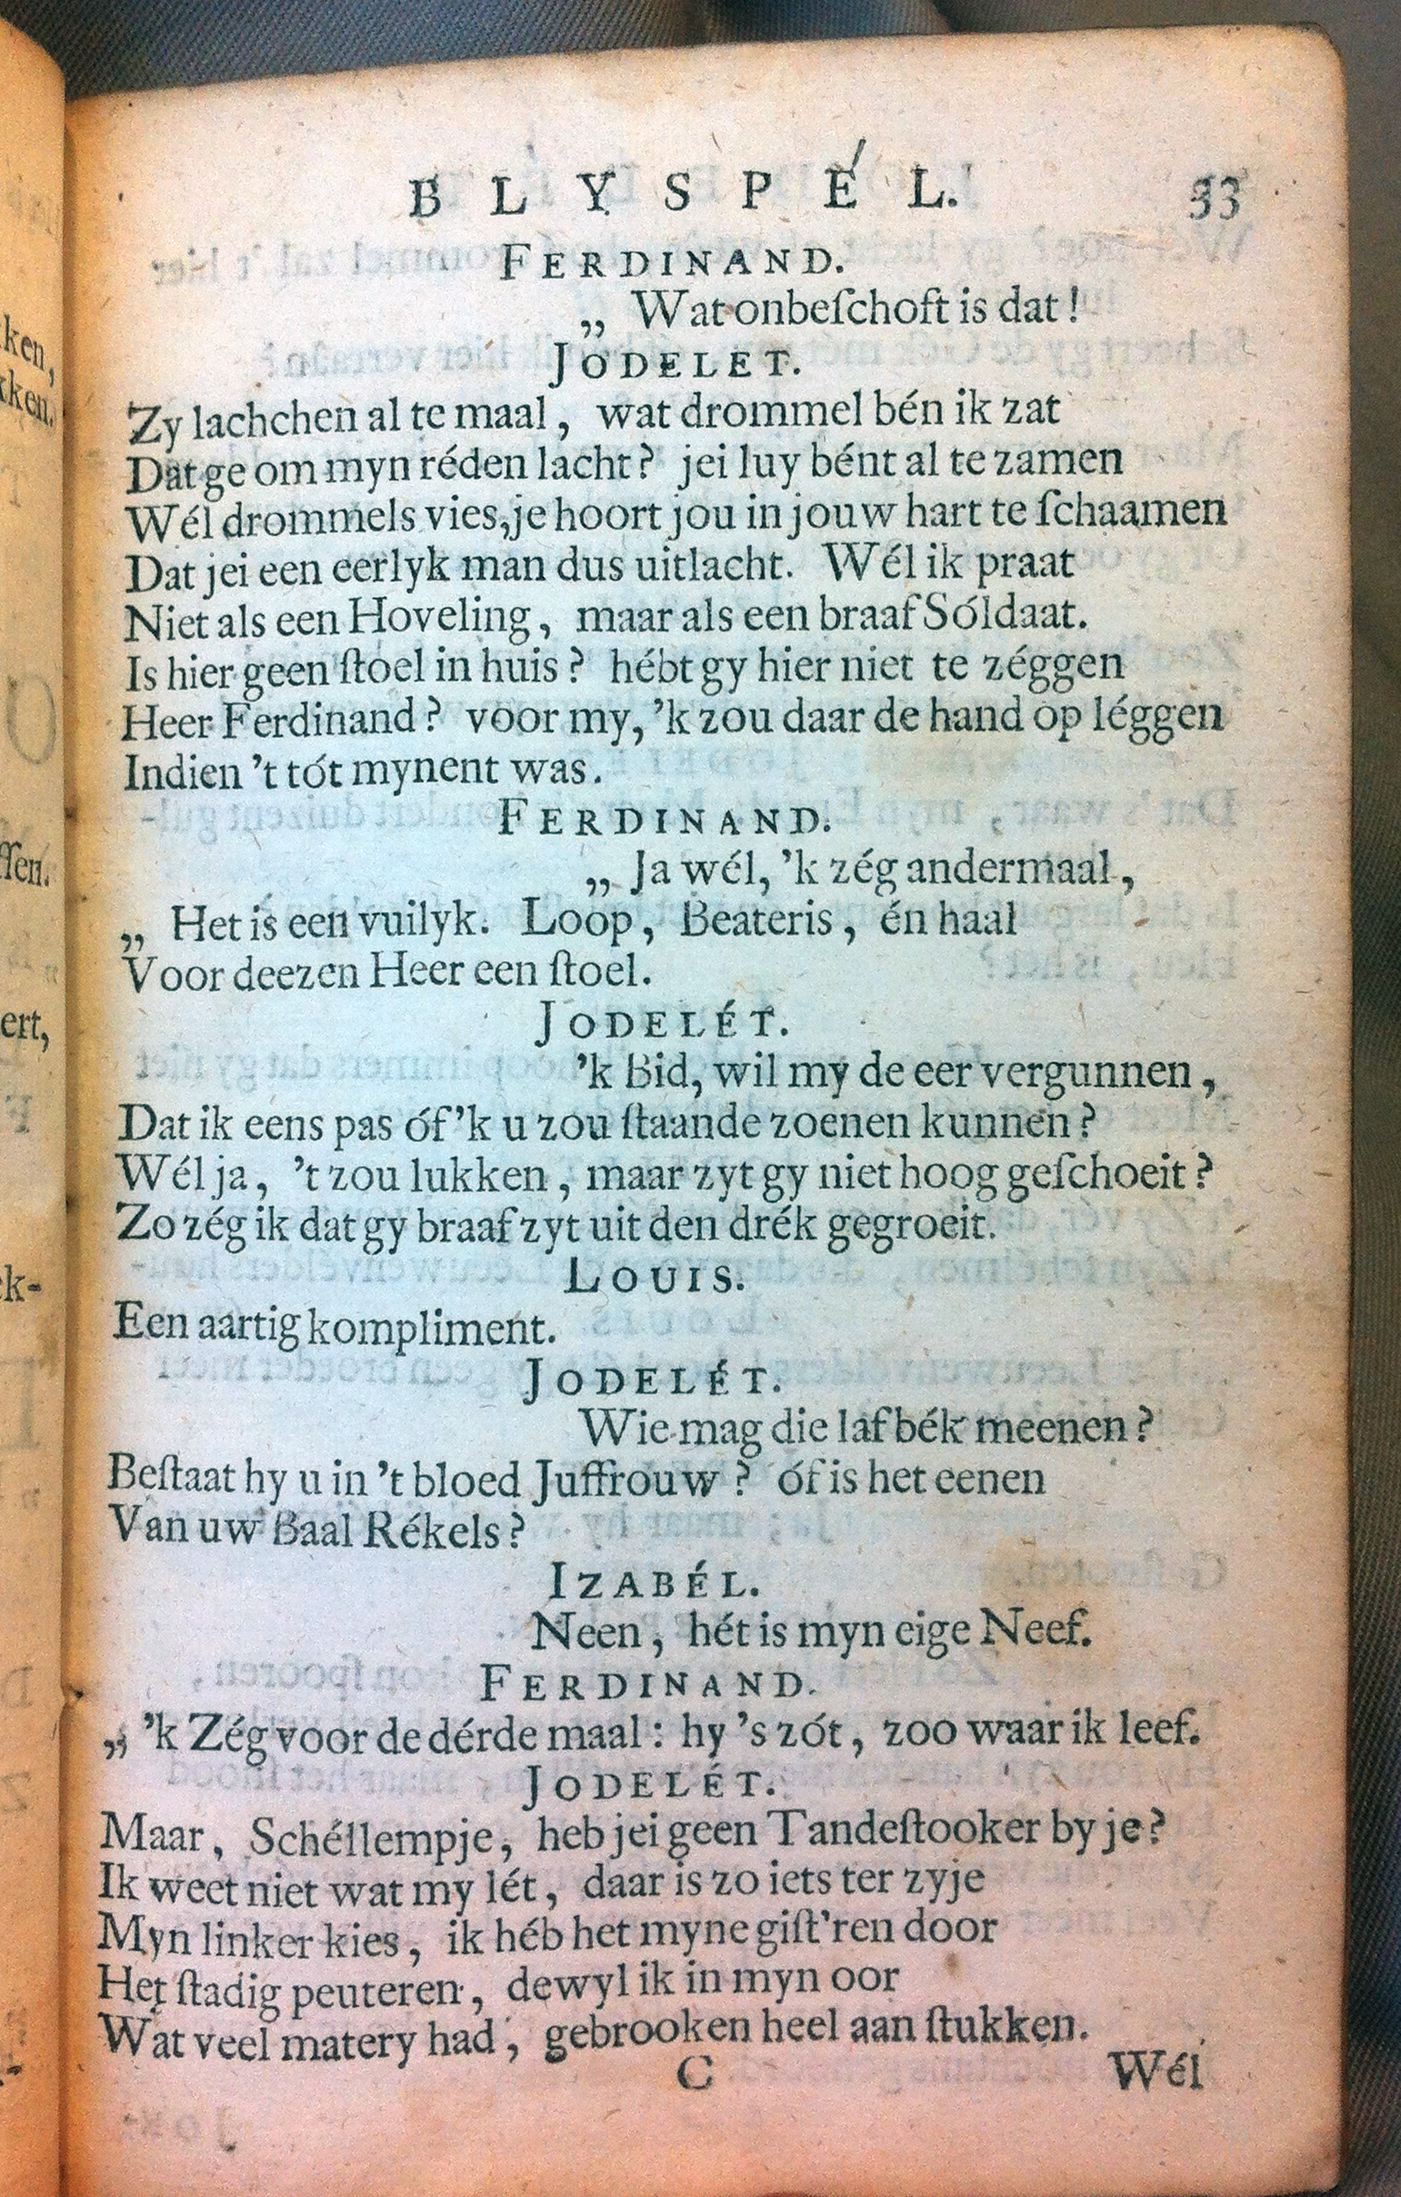 BLYSPÉL. 33
FERDINAND.
„ Wat onbeſchoft is dat!
JODELET.
Zy lachchen al te maal, wat drommel bén ik zat
Dat ge om myn réden lacht? jei luy bént al te zamen
Wél drommels vies, je hoort jou in jouw hart te ſchaamen
Dat jei een eerlyk man dus uitlacht. Wél ik praat
Niet als een Hoveling, maar als een braaf Sóldaat.
Is hier geen ſtoel in huis? hébt gy hier niet te zéggen
Heer Ferdinand? voor my, 'k zou daar de hand op léggen
Indien 't tót mynent was.
FERDINAND.
„ Ja wél, 'k zég andermaal,
„ Het is een vuilyk. Loop, Beateris, én haal
Voor deezen Heer een ſtoel.
JODELÉT.
'k Bid, wil my de eer vergunnen,
Dat ik eens pas óf 'k u zou ſtaande zoenen kunnen?
Wél ja, 't zou lukken, maar zyt gy niet hoog geſchoeit?
Zo zég ik dat gy braaf zyt uit den drék gegroeit.
LOUIS.
Een aartig kompliment.
JODELÉT.
Wie mag die lafbék meenen?
Beſtaat hy u in 't bloed Juffrouw? óf is het eenen
Van uw Baal Rékels?
IZABÉL.
Neen, hét is myn eige Neef.
FERDINAND.
„ 'k Zég voor de dérde maal: hy 's zót, zoo waar ik leef.
JODELÉT.
Maar, Schéllempje, heb jei geen Tandeſtooker by je?
Ik weet niet wat my lét, daar is zo iets ter zyje
Myn linker kies, ik héb het myne giſt'ren door
Het ſtadig peuteren, dewyl ik in myn oor
Wat veel matery had, gebrooken heel aan ſtukken.
C Wél
ken,
kken.
ſſen.
ert,
ck-